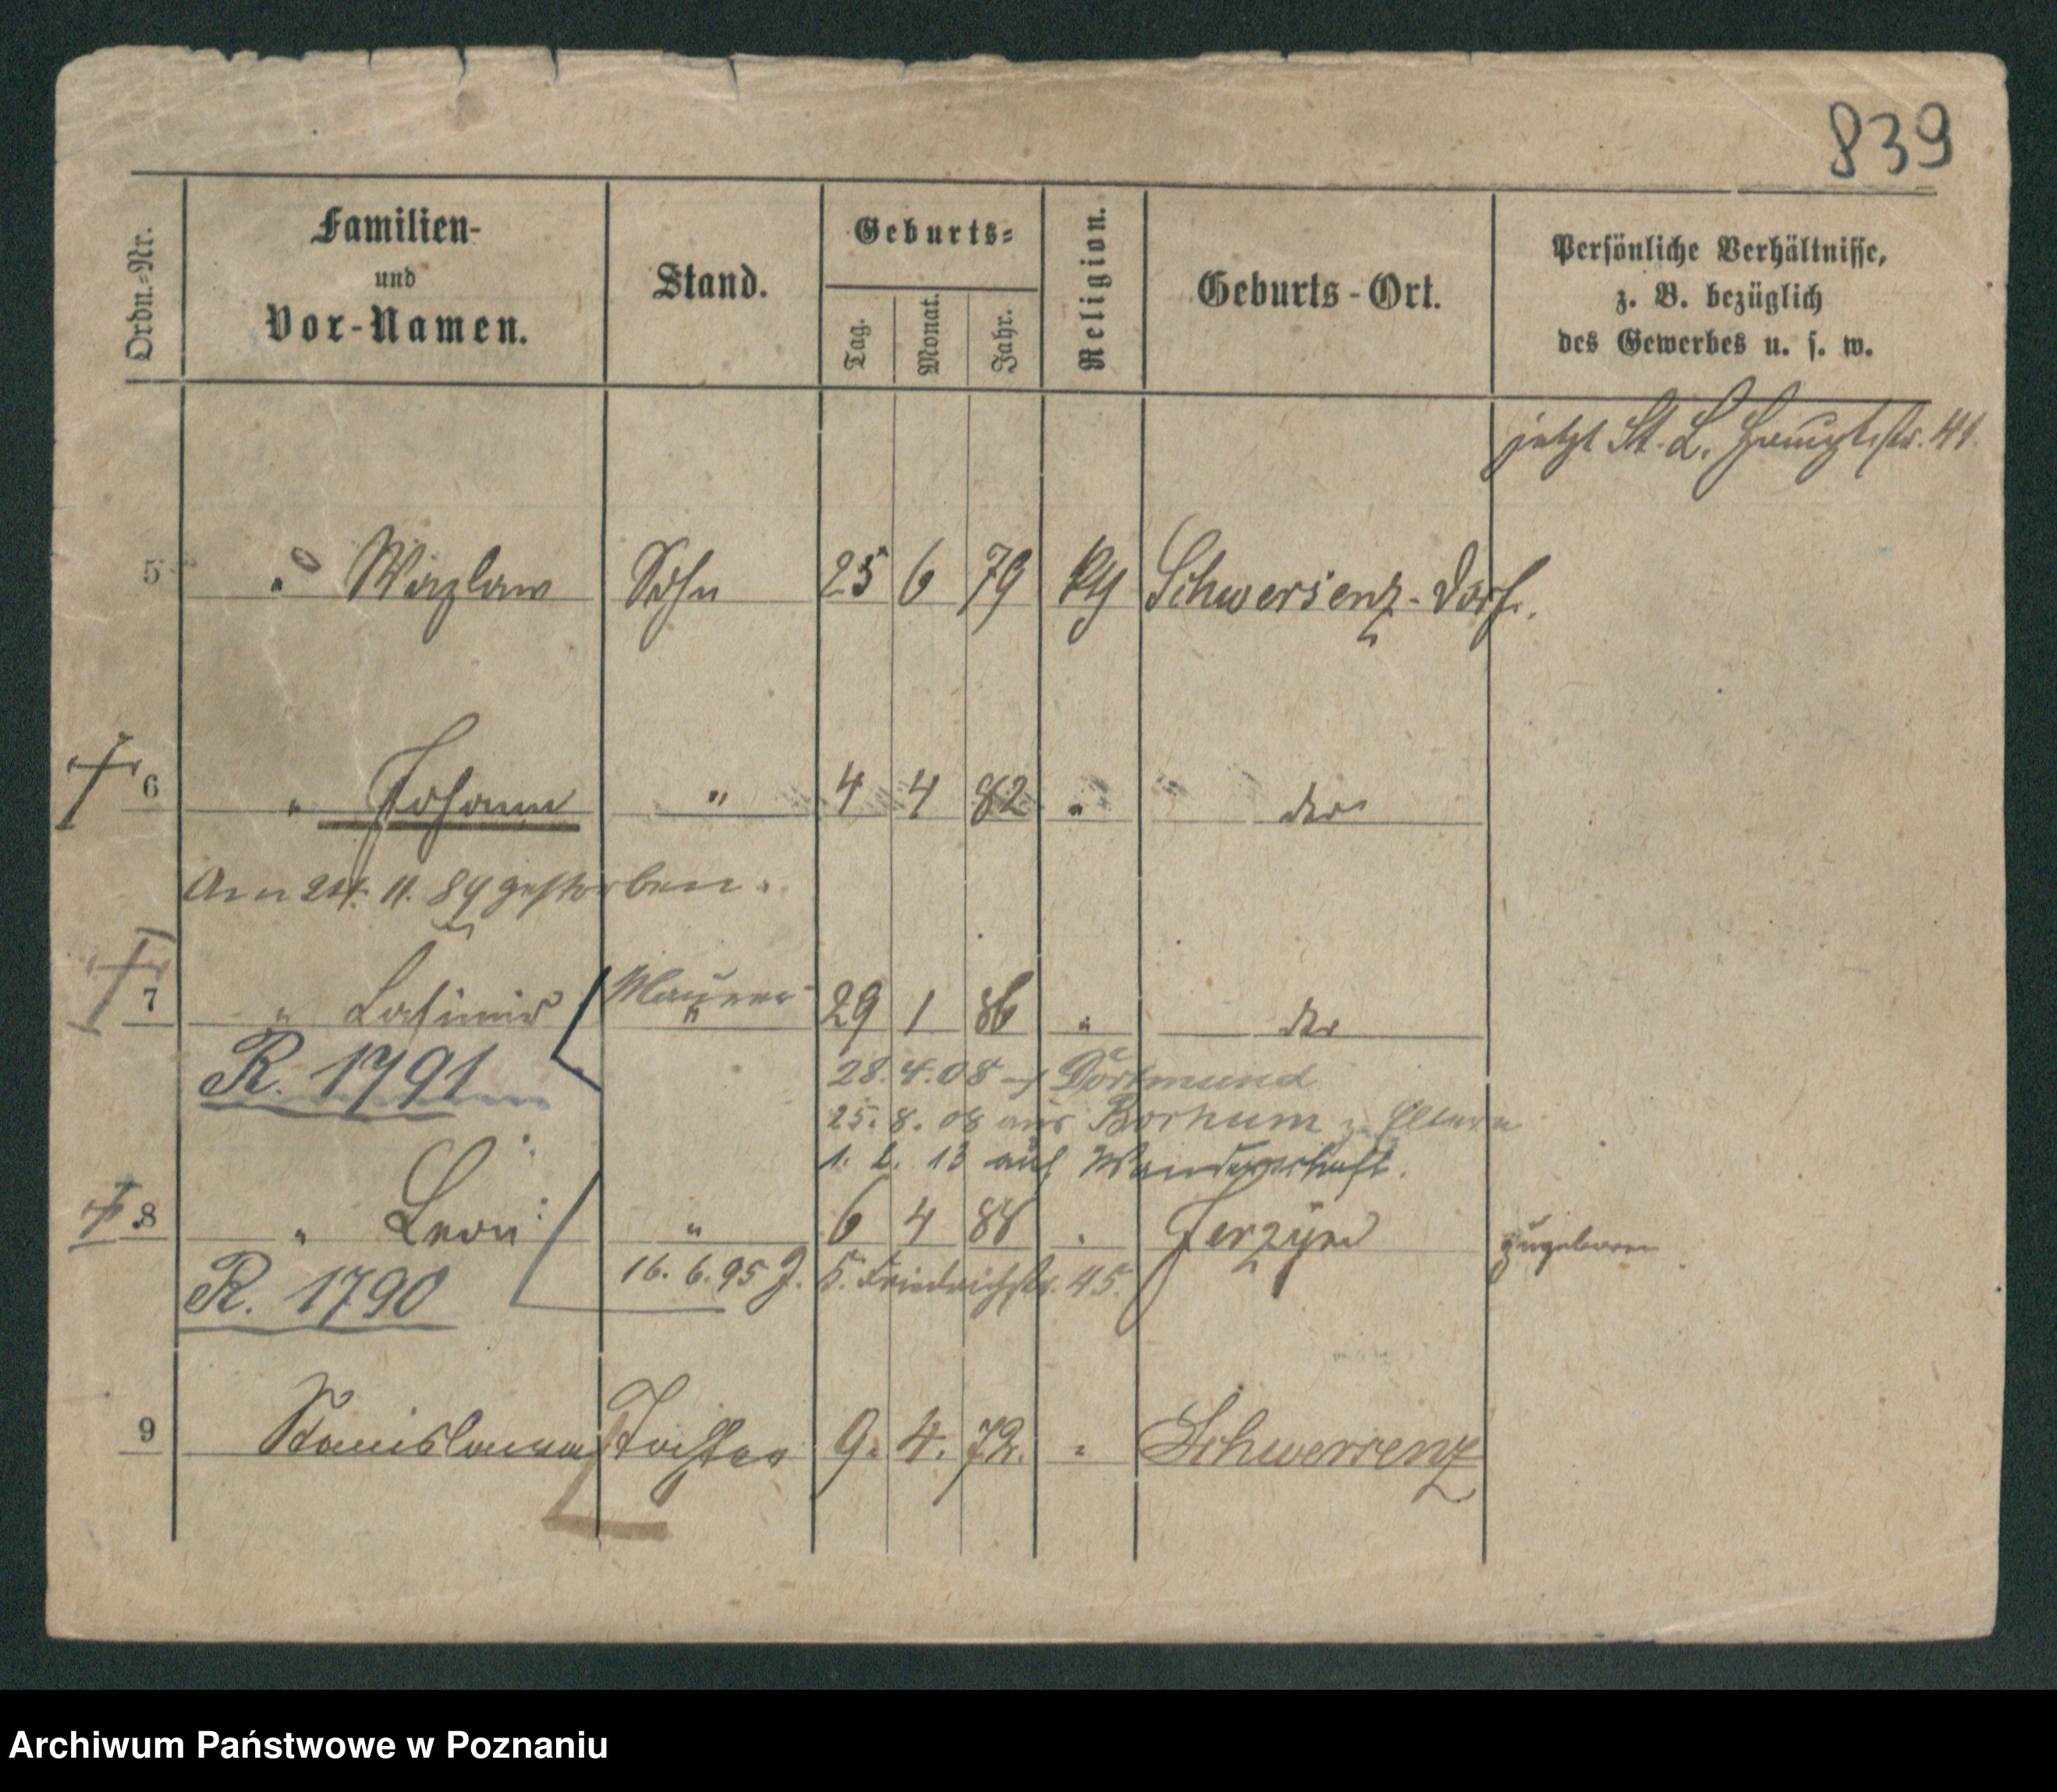 839
Ordn.-Nr.
Familien-
und
Vor-Namen.
Stand.
Geburts-
Tag.
Monat.
Jahr.
Religion.
Geburts-Ort.
Persönliche Verhältnisse,
z. B. bezüglich
des Gewerbes u. s. w.
jetzt St. L. Hauptstr. 41.
5 " Wazlaw Sohn 25 6 79 kth Schwersenz-Dorf.
6 " Johann " 4 4 82 " der
Am 24. 11. 89 gestorben.
7 " Casimir Maurer " 29 1 86 " der
R. 1791
28.4.08 → Dortmund
25. 8. 08 aus Borkum z. Eltern
1. 2. 13 auf Wanderschaft.
8 " Leon " 6 4 88 " Jerzyce zugeboren
R. 1790
16. 6. 95 J. 5. Friedrichstr. 45.
9 Stanislawa Tochter 9. 4. 72. " Schwersenz
Archiwum Państwowe w Poznaniu